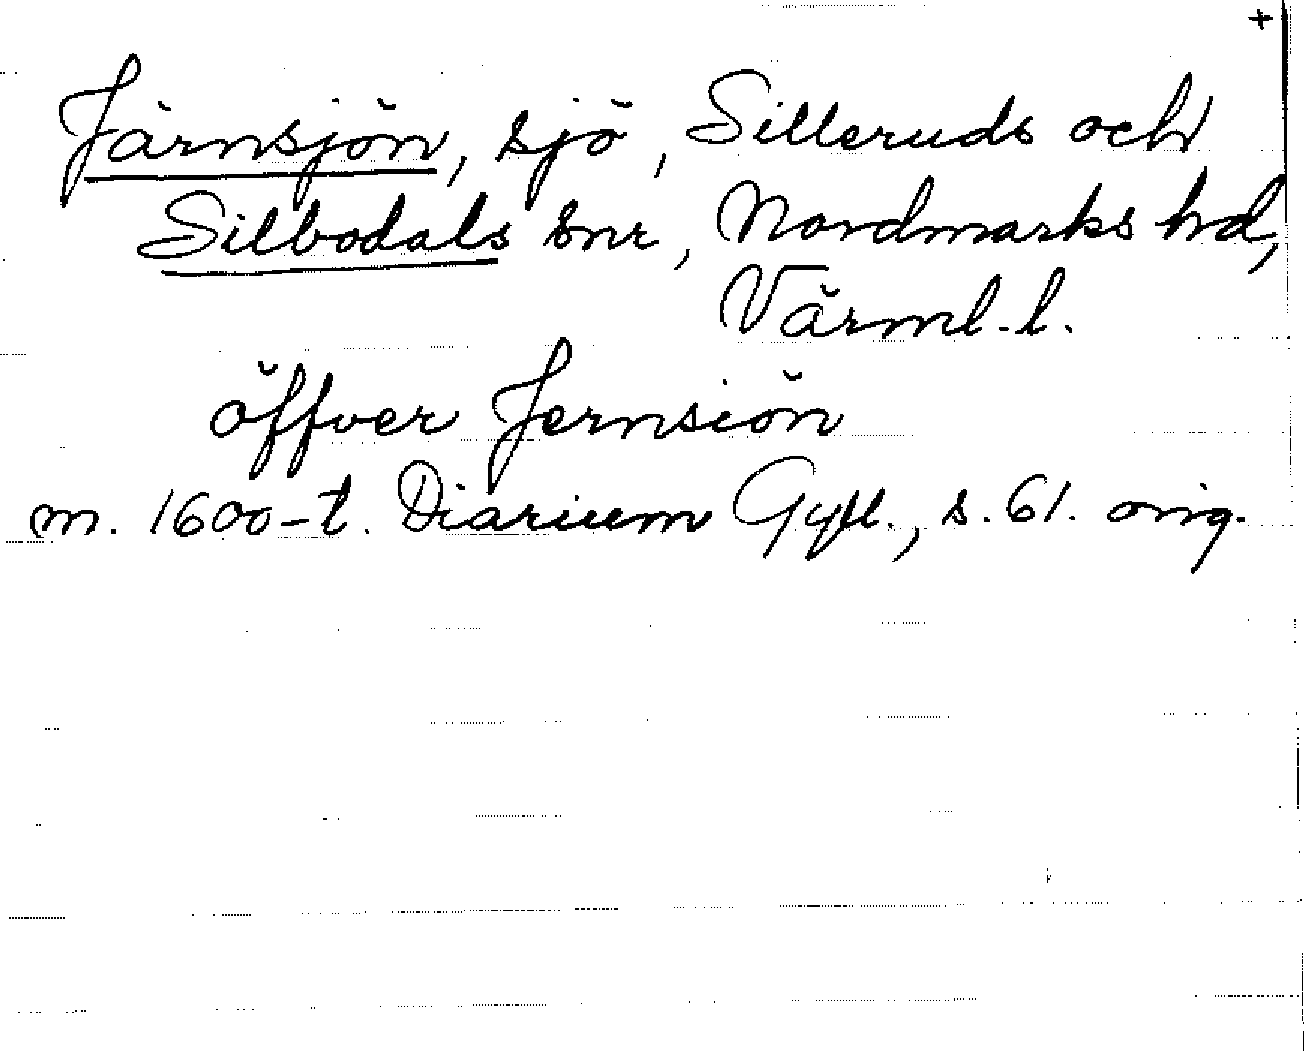 +
Järnsjön, sjö, Silleruds och
Silbodals snr, Nordmarks hd,
Värml. l.
öffver Jernsiön
m. 1600-t. Diarium Gyll., s. 61. orig.